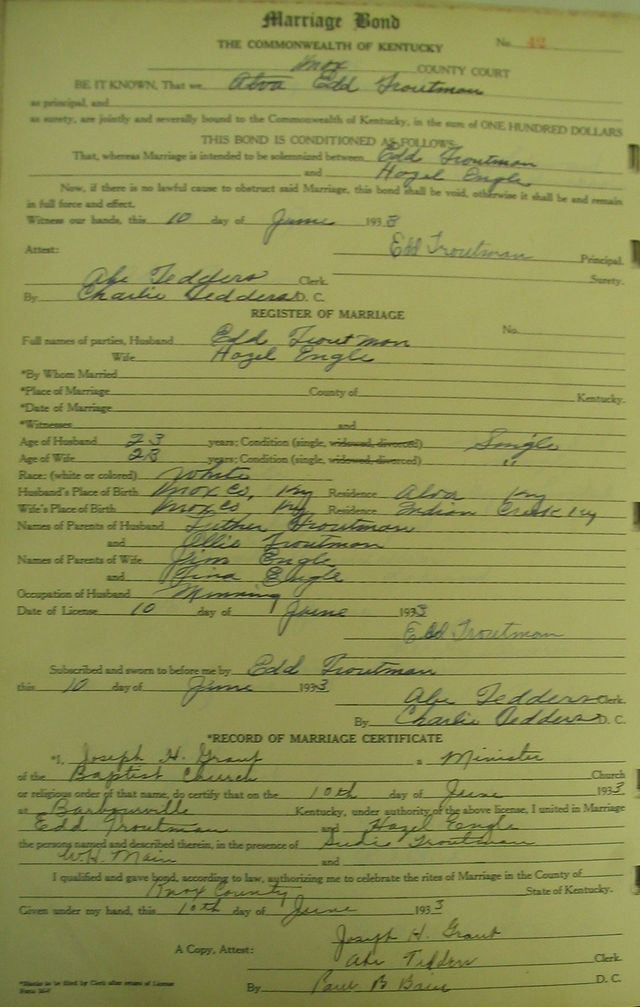 Marriage Bond
THE COMMONWEALTH OF KENTUCKY No. 42
Knox COUNTY COURT
BE IT KNOWN, That we Alva Edd Troutman
as principal, and
as surety, are jointly and severally bound to the Commonwealth of Kentucky, in the sum of ONE HUNDRED DOLLARS
THIS BOND IS CONDITIONED AS FOLLOWS
That, whereas Marriage is intended to be solemnized between Edd Troutman
and Hazel Engle
Now, if there is no lawful cause to obstruct said Marriage, this bond shall be void, otherwise it shall be and remain
in full force and effect.
Witness our hands, this 10 day of June 1933
Attest: Edd Troutman Principal.
Abe Tedders Clerk. Surety.
By Charlie Tedders D. C.
REGISTER OF MARRIAGE
No.
Full names of parties, Husband Edd Troutman
Wife Hazel Engle
*By Whom Married
*Place of Marriage County of Kentucky.
*Date of Marriage
*Witnesses and
Age of Husband 23 years; Condition (single, widowed, divorced) Single
Age of Wife 23 years; Condition (single, widowed, divorced) "
Race: (white or colored) White
Husband's Place of Birth Knox Co, Ky Residence Alva Ky
Wife's Place of Birth Knox Co, Ky Residence Indian Creek Ky
Names of Parents of Husband Luther Troutman
and Ollie Troutman
Names of Parents of Wife Jim Engle
and Engle
Occupation of Husband Minning
Date of License 10 day of June 1933
Edd Troutman
Subscribed and sworn to before me by Edd Troutman
this 10 day of June 1933
Abe Tedders Clerk.
By Charlie Tedders D. C.
*RECORD OF MARRIAGE CERTIFICATE
*I, Joseph H. Grant a Minister
of the Baptist Church Church
or religious order of that name, do certify that on the 10th day of June 1933
at Barbourville Kentucky, under authority of the above license, I united in Marriage
Edd Troutman and Hazel Engle
the persons named and described therein, in the presence of Sudie Troutman
W.H. Main and
I qualified and gave bond, according to law, authorizing me to celebrate the rites of Marriage in the County of
Knox County State of Kentucky.
Given under my hand, this 10th day of June 1933
Joseph H. Grant
A Copy, Attest: Abe Tedders Clerk.
By Paul B D. C.
*Blanks to be filled by Clerk after return of License